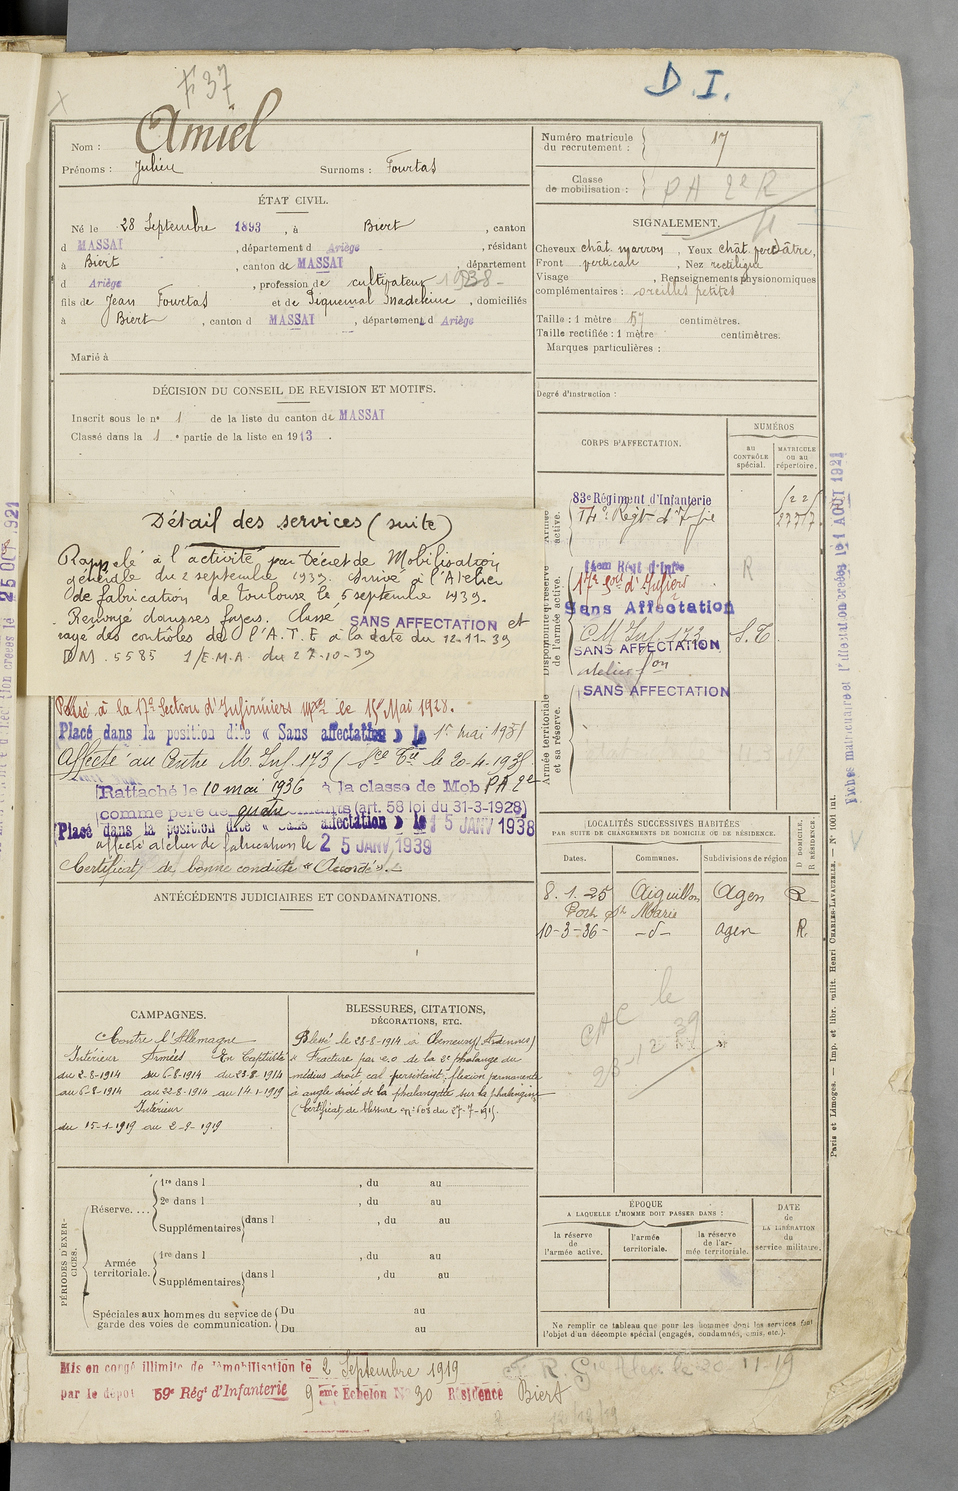 F 37
D. I.
Nom : Amiel
Prénoms : Julien Surnoms : Fourtas
Numéro matricule du recrutement : 17
Classe de mobilisation : PA 2e R
ÉTAT CIVIL.
Né le 28 Septembre 1893, à Biert, canton
d MASSAT, département d Ariège, résidant
à Biert, canton de MASSAT, département
d Ariège, profession de cultivateur 1938
fils de Jean Fourtas et de Piquemal Madeleine, domiciliés
à Biert, canton d MASSAT, département d Ariège
Marié à
SIGNALEMENT.
Cheveux chât. marron, Yeux chât.
Front verticale, Nez rectiligne
Visage , Renseignements physionomiques
complémentaires : oreilles petites
Taille : 1 mètre 57 centimètres.
Taille rectifiée : 1 mètre centimètres.
Marques particulières :
Degré d'instruction :
DÉCISION DU CONSEIL DE REVISION ET MOTIFS.
Inscrit sous le n° 1 de la liste du canton de MASSAT
Classé dans la 1e partie de la liste en 1913.
Détail des services (suite)
Rappelé à l'activité par Décret de Mobilisation
générale du 2 septembre 1939. Arrivé à l'Atelier
de fabrication de Toulouse le 5 septembre 1939.
Renvoyé dans ses foyers. Classé SANS AFFECTATION et
rayé des contrôles de l'A.T.E à la date du 12-11-39
D.M. 5585 1/E.M.A. du 27-10-39
Passé à la 17e Section d'Infirmiers mres le 15 Mai 1928.
Placé dans la position dite « Sans affectation » le 1er mai 1931
Affecté au Centre M. Inf. 173 le 20-4-1935
Rattaché le 10 mai 1936 à la classe de Mob PA 2e
comme père de quatre enfants (art. 58 loi du 31-3-1928)
Placé dans la position dite « Sans affectation » le 15 JANV 1938
affecté atelier de fabrication le 25 JANV 1939
Certificat de bonne conduite « Accordé ».
CORPS D'AFFECTATION.
NUMÉROS
au CONTRÔLE spécial.
MATRICULE ou au répertoire.
Armée active.
83e Régiment d'Infanterie
Disponibilité et réserve de l'armée active.
Sans Affectation
C M Inf. 173 S.T.
SANS AFFECTATION
Armée territoriale et sa réserve.
SANS AFFECTATION
R
ANTÉCÉDENTS JUDICIAIRES ET CONDAMNATIONS.
LOCALITÉS SUCCESSIVES HABITÉES
PAR SUITE DE CHANGEMENTS DE DOMICILE OU DE RÉSIDENCE.
Dates. Communes. Subdivisions de région
D DOMICILE. R RÉSIDENCE.
8.1.25 Aiguillon Agen R
Port Ste Marie
10-3-36 -d- agen R.
CAMPAGNES.
Contre l'Allemagne
Intérieur Armées En Captivité
du 2-8-1914 du 6-8-1914 du 23-8-1914
au 6-8-1914 au 22-8-1914 au 14-1-1919
Intérieur
du 15-1-1919 au 2-9-1919
BLESSURES, CITATIONS,
DÉCORATIONS, ETC.
Blessé le 23-8-1914 à (Ardennes)
" Fracture par e.o de la 2e phalange du
médius droit cal persistant, flexion permanente
à angle droit de la phalangette sur la phalangine
(Certificat de blessure n° 608 du 27-7-1915.
PÉRIODES D'EXERCICES.
Réserve....
1re dans l , du au
2e dans l , du au
Supplémentaires dans l , du au
Armée territoriale.
1re dans l , du au
Supplémentaires dans l , du au
Spéciales aux hommes du service de garde des voies de communication.
Du au
Du au
ÉPOQUE
A LAQUELLE L'HOMME DOIT PASSER DANS :
la réserve de l'armée active.
l'armée territoriale.
la réserve de l'armée territoriale.
DATE de LA LIBÉRATION du service militaire.
Ne remplir ce tableau que pour les hommes dont les services font
l'objet d'un décompte spécial (engagés, condamnés, omis, etc.).
Mis en congé illimité de démobilisation le 2 Septembre 1919
par le dépôt 59e Régt d'Infanterie 9ème Echelon N° 30 Résidence Biert
Fiches matriculaire et d'affectation créées le 1 AOUT 1921
Paris et Limoges. — Imp. et libr. milit. Henri CHARLES-LAVAUZELLE. — N° 1001 int.
25 OCT. 1921